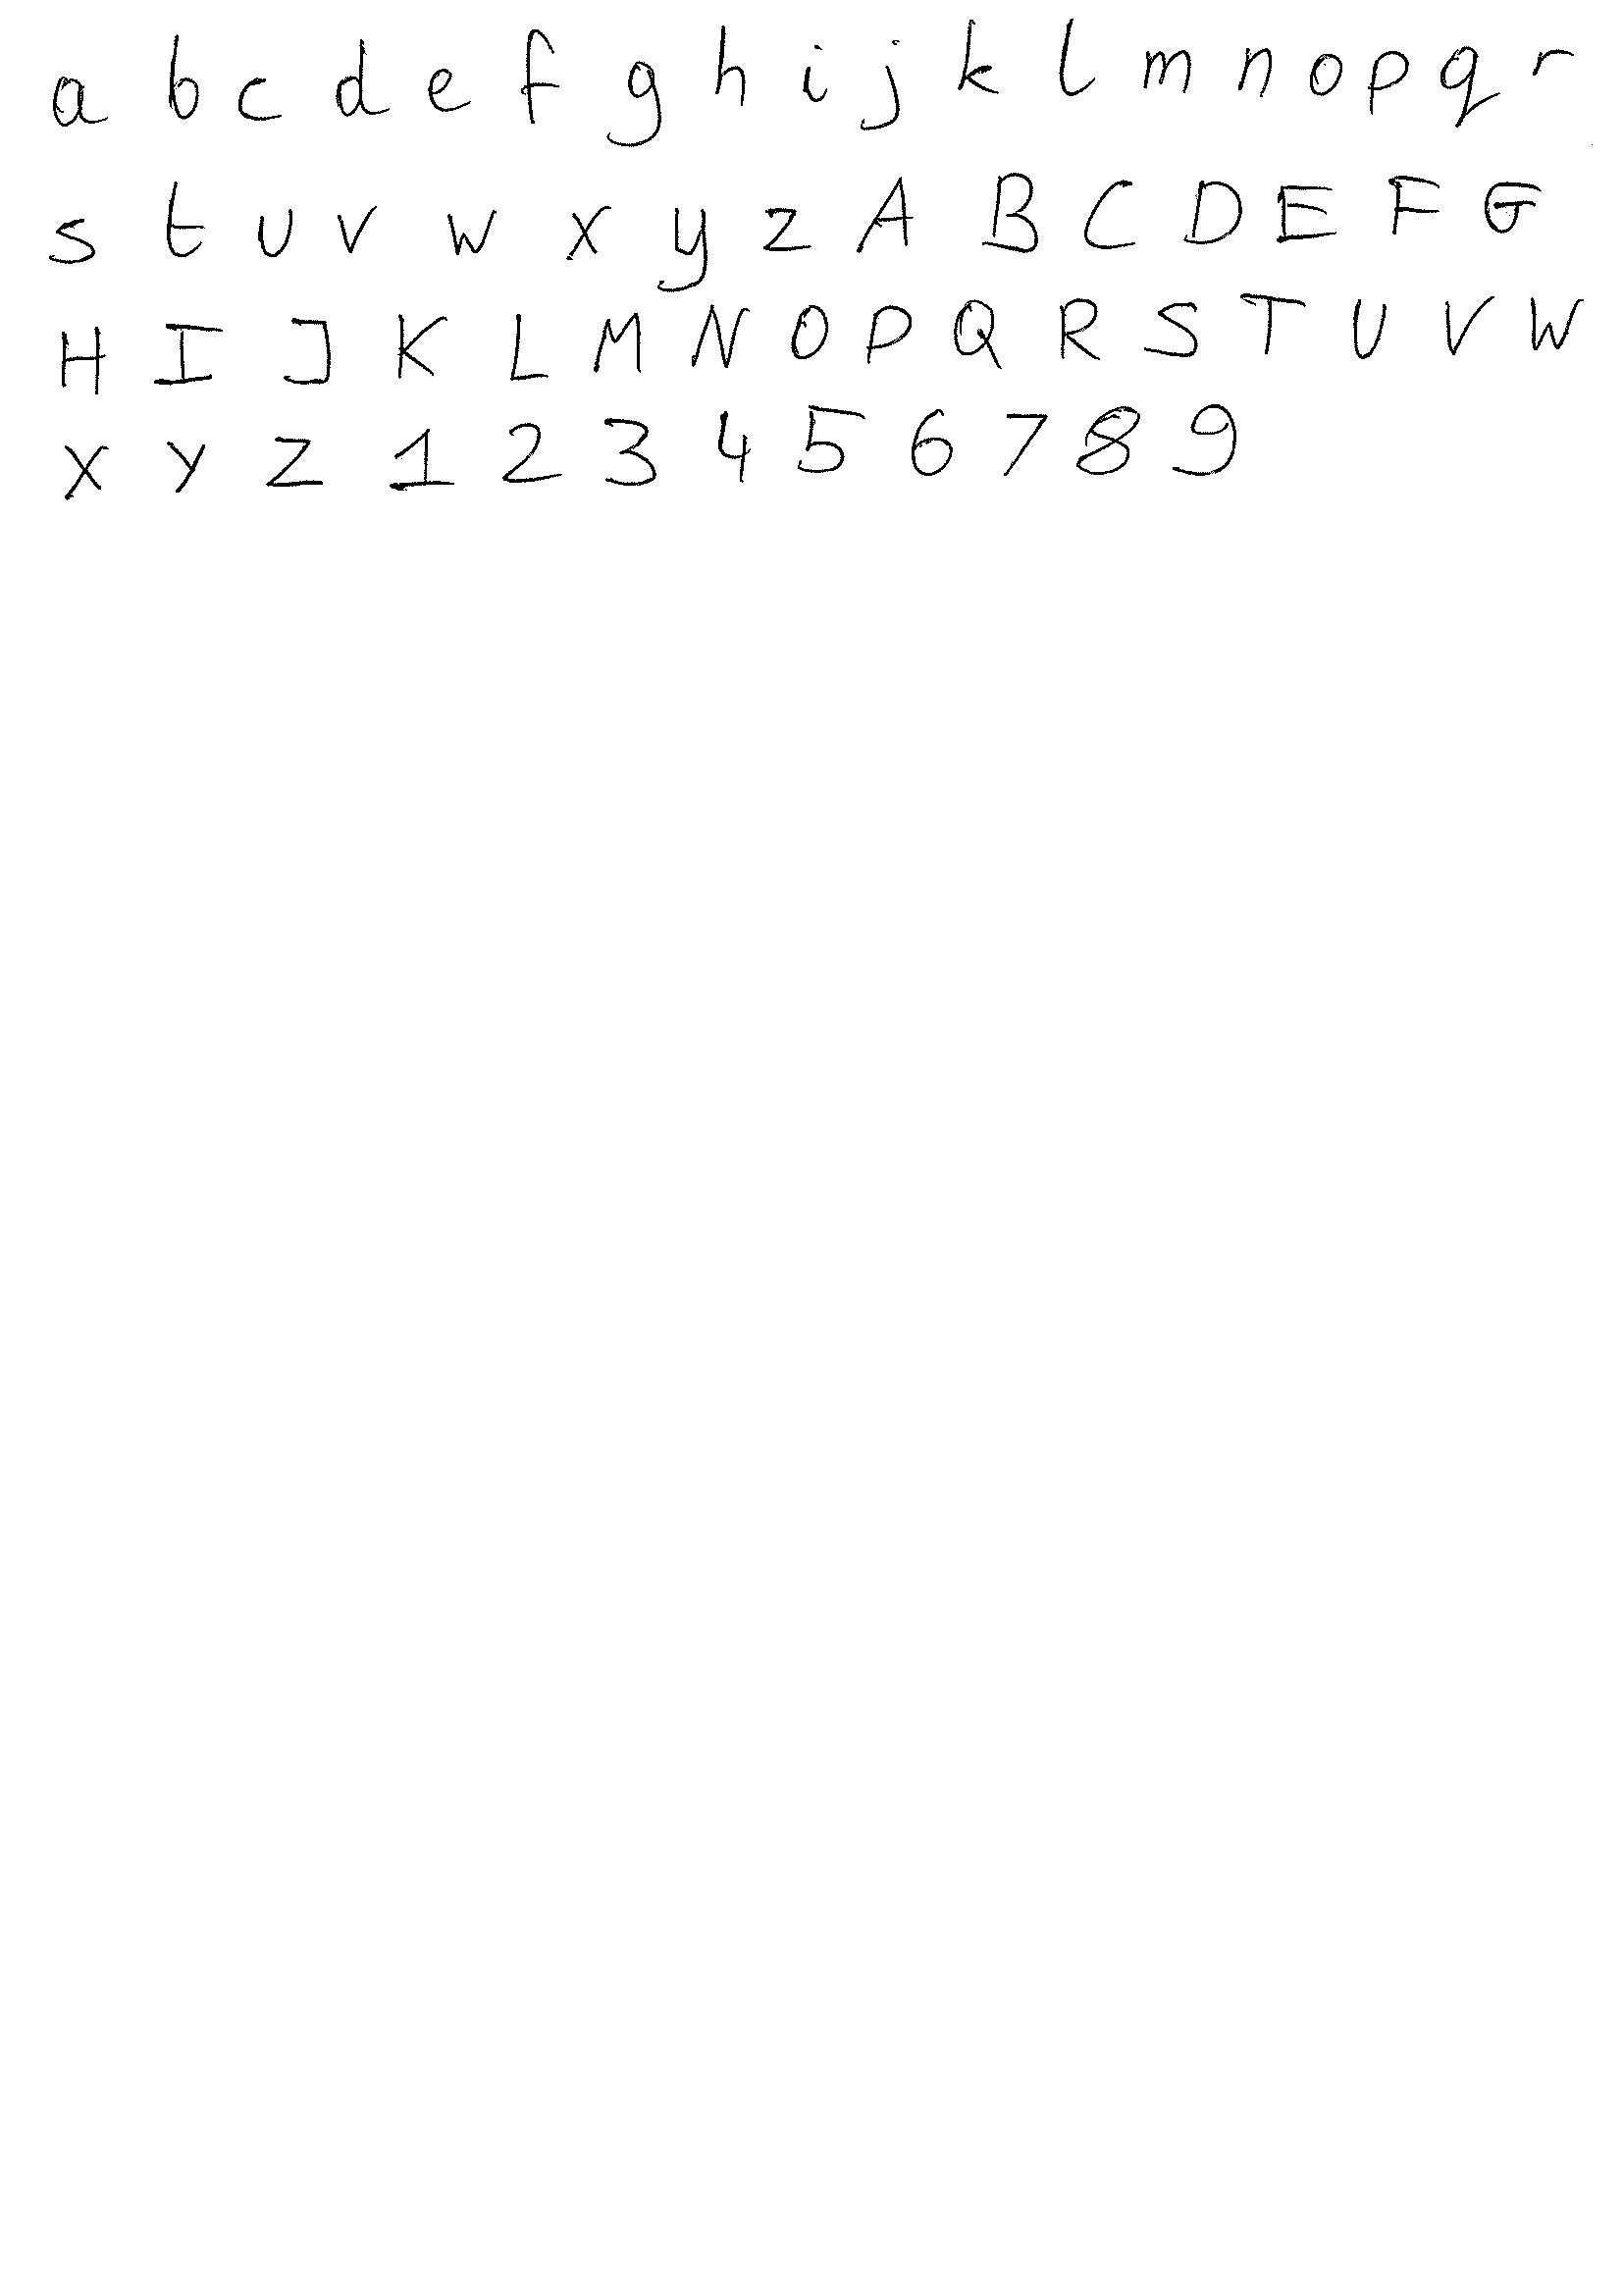 a b c d e f g h i j k l m n o p q r
s t u v w x y z A B C D E F G
H I J K L M N O P Q R S T U V W
X Y Z 1 2 3 4 5 6 7 8 9